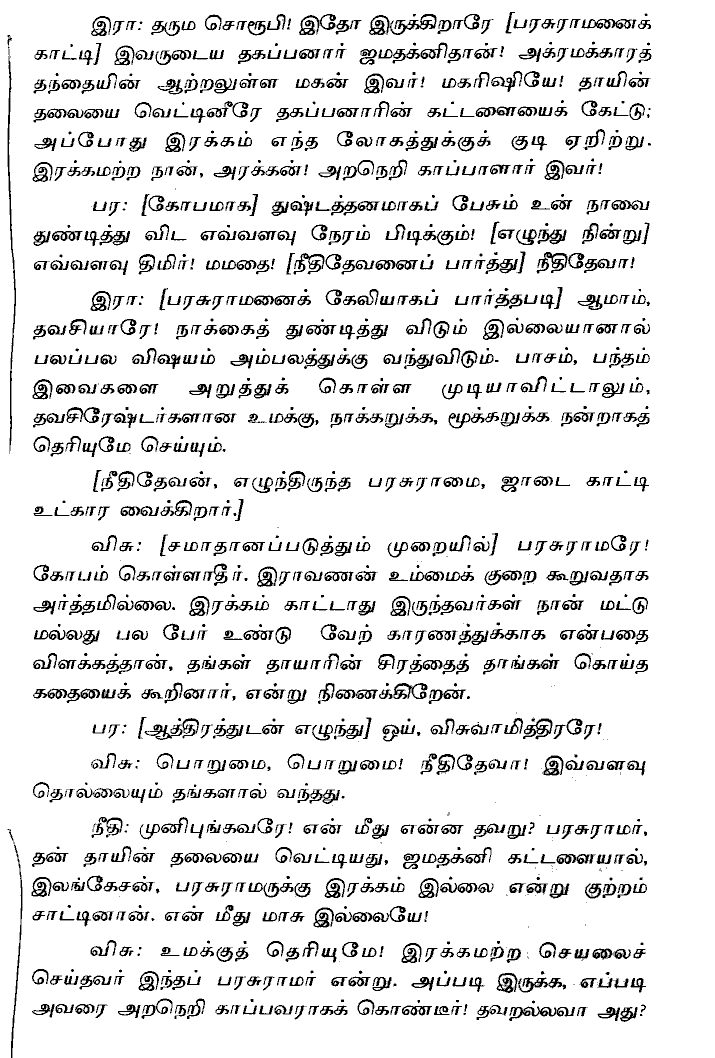 இரா: தரும சொரூபி! இதோ இருக்கிறாரே [பரசுராமனைக்
காட்டி] இவருடைய தகப்பனார் ஜமதக்னிதான்! அக்ரமக்காரத்
தந்தையின் ஆற்றலுள்ள மகன் இவர்! மகரிஷியே! தாயின்
தலையை வெட்டினீரே தகப்பனாரின் கட்டளையைக் கேட்டு;
அப்போது இரக்கம் எந்த லோகத்துக்குக் குடி ஏறிற்று.
இரக்கமற்ற நான், அரக்கன்! அறநெறி காப்பாளார் இவர்!
பர: [கோபமாக] துஷ்டத்தனமாகப் பேசும் உன் நாவை
துண்டித்து விட எவ்வளவு நேரம் பிடிக்கும்! [எழுந்து நின்று]
எவ்வளவு திமிர்! மமதை! [நீதிதேவனைப் பார்த்து] நீதிதேவா!
இரா: [பரசுராமனைக் கேலியாகப் பார்த்தபடி] ஆமாம்,
தவசியாரே! நாக்கைத் துண்டித்து விடும் இல்லையானால்
பலப்பல விஷயம் அம்பலத்துக்கு வந்துவிடும். பாசம், பந்தம்
இவைகளை அறுத்துக் கொள்ள முடியாவிட்டாலும்,
தவசிரேஷ்டர்களான உமக்கு, நாக்கறுக்க, மூக்கறுக்க நன்றாகத்
தெரியுமே செய்யும்.
[நீதிதேவன், எழுந்திருந்த பரசுராமை, ஜாடை காட்டி
உட்கார வைக்கிறார்.]
விசு: [சமாதானப்படுத்தும் முறையில்] பரசுராமரே!
கோபம் கொள்ளாதீர். இராவணன் உம்மைக் குறை கூறுவதாக
அர்த்தமில்லை. இரக்கம் காட்டாது இருந்தவர்கள் நான் மட்டு
மல்லது பல பேர் உண்டு வேற் காரணத்துக்காக என்பதை
விளக்கத்தான், தங்கள் தாயாரின் சிரத்தைத் தாங்கள் கொய்த
கதையைக் கூறினார், என்று நினைக்கிறேன்.
பர: [ஆத்திரத்துடன் எழுந்து] ஒய், விசுவாமித்திரரே!
விசு: பொறுமை, பொறுமை! நீதிதேவா! இவ்வளவு
தொல்லையும் தங்களால் வந்தது.
நீதி: முனிபுங்கவரே! என் மீது என்ன தவறு? பரசுராமர்,
தன் தாயின் தலையை வெட்டியது, ஜமதக்னி கட்டளையால்,
இலங்கேசன், பரசுராமருக்கு இரக்கம் இல்லை என்று குற்றம்
சாட்டினான். என் மீது மாசு இல்லையே!
விசு: உமக்குத் தெரியுமே! இரக்கமற்ற செயலைச்
செய்தவர் இந்தப் பரசுராமர் என்று. அப்படி இருக்க, எப்படி
அவரை அறநெறி காப்பவராகக் கொண்டீர்! தவறல்லவா அது?